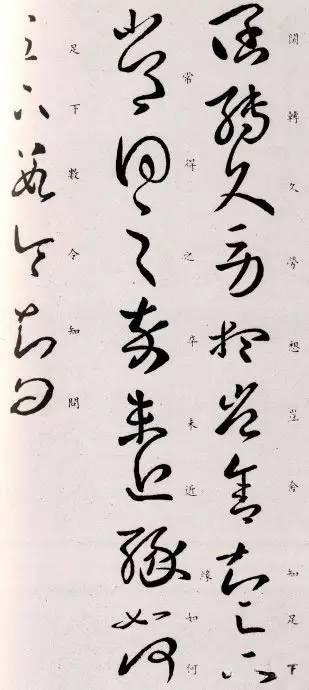 閒轉久勞想豈舍知足下
常得之卒未近緣如何
足下數令知問